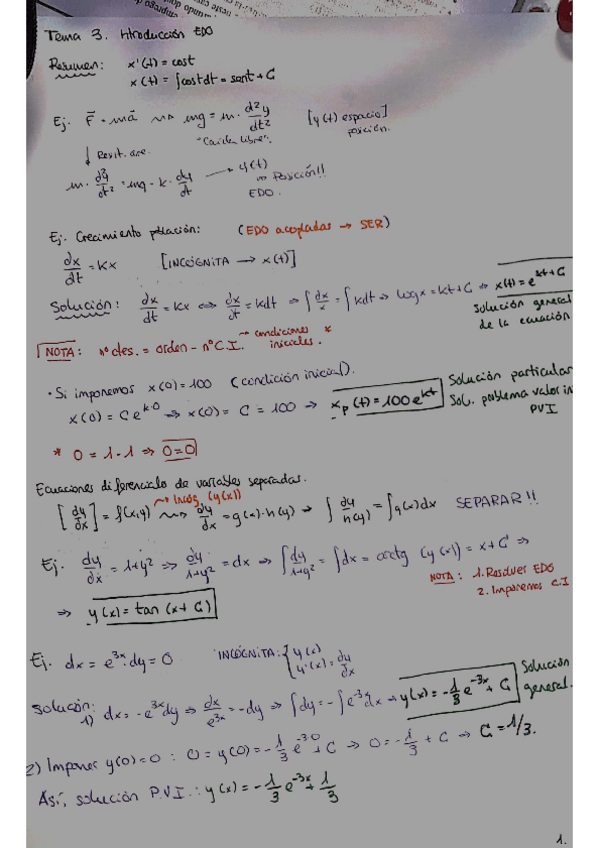 Tema 3. Introducción EDO
Resumen: x'(t) = cost
x(t) = ∫cost dt = sent + C
Ej. F⃗ = m a⃗ ⇝ mg = m · d²y/dt² [y(t) espacio] posición.
"Caída libre".
↓ Rozit. aire.
m · d²y/dt² = mg - k · dy/dt → y(t)
Posición!!
EDO.
Ej. Crecimiento población: (EDO acopladas → SER)
dx/dt = Kx [INCÓGNITA → x(t)]
Solución: dx/dt = Kx ⇔ dx/x = kdt ⇒ ∫dx/x = ∫kdt ⇒ logx = kt + C ⇒ x(t) = e^(kt+C)
Solución general de la ecuación
NOTA: nº ctes. = orden - nº C.I. → condiciones iniciales. *
· Si imponemos x(0) = 100 (condición inicial).
x(0) = C e^(k·0) ⇒ x(0) = C = 100 ⇒ xp(t) = 100e^(kt)
Solución particular
Sol. problema valor in
PVI
* 0 = 1 - 1 ⇒ 0 = 0
Ecuaciones diferenciales de variables separadas.
→ Incóg. (y(x))
[dy/dx] = f(x,y) ⇝ dy/dx = g(x)·h(y) ⇒ ∫dy/h(y) = ∫g(x)dx SEPARAR!!
Ej. dy/dx = 1+y² ⇒ dy/1+y² = dx ⇒ ∫dy/1+y² = ∫dx = arctg (y(x)) = x + C ⇒
NOTA: 1. Resolver EDO
2. Imponemos C.I
⇒ y(x) = tan (x + C)
Ej. dx = e^3x · dy = 0 INCÓGNITA: { y(x)
y'(x) = dy/dx
Solución:
1) dx = -e^3x dy ⇒ dx/e^3x = -dy ⇒ ∫dy = -∫e^-3x dx ⇒ y(x) = -1/3 e^-3x + C
Solución general.
2) Imponer y(0) = 0 : 0 = y(0) = -1/3 e^-3·0 + C ⇒ 0 = -1/3 + C ⇒ C = 1/3.
Así, solución P.V.I. : y(x) = -1/3 e^-3x + 1/3
1.